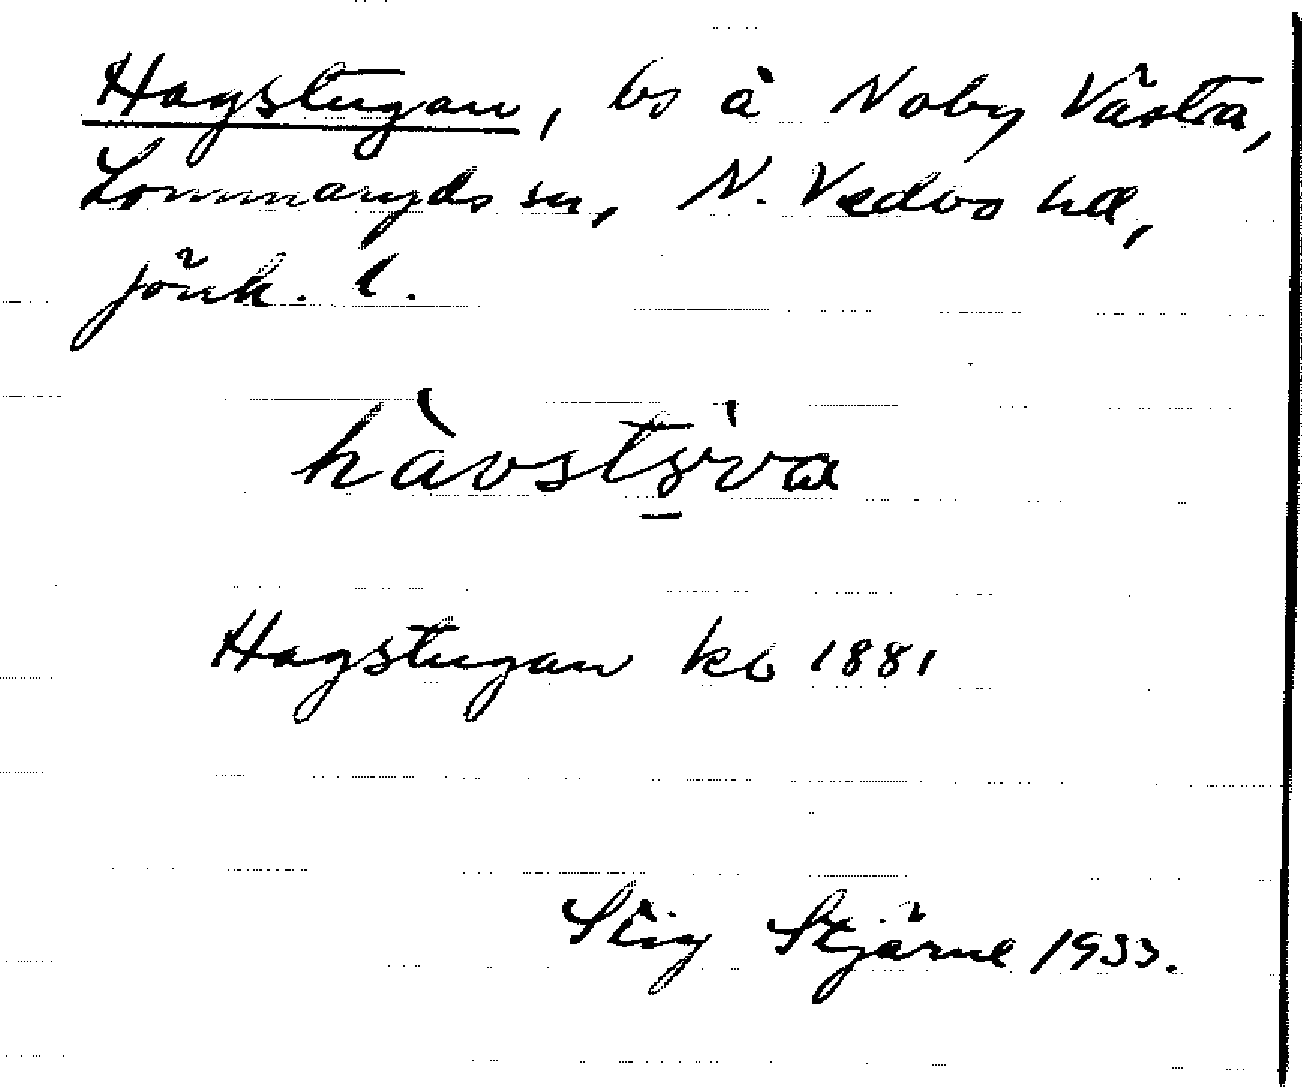 Hagstugan, bs å Noby Västra,
Lommaryds sn, N. Vedbo hd,
Jönk. l.
hàvstv̀va
Hagstugan kb 1881
Stig Stjärne 1933.